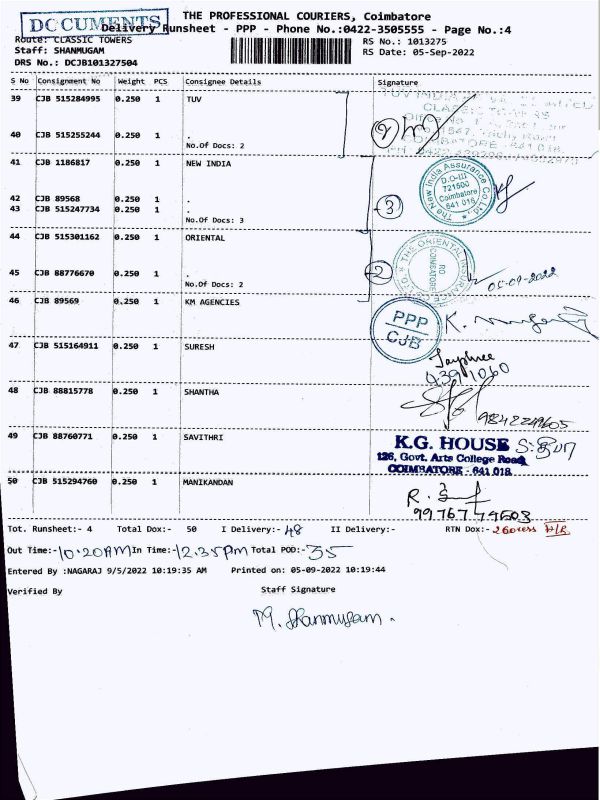 DOCUMENTS
THE PROFESSIONAL COURIERS, Coimbatore
Delivery Runsheet - PPP - Phone No.:0422-3505555 - Page No.:4
Route: CLASSIC TOWERS
RS No.: 1013275
Staff: SHANMUGAM
RS Date: 05-Sep-2022
DRS No.: DCJB101327504
S No Consignment No Weight PCS Consignee Details Signature
39 CJB 515284995 0.250 1 TUV
40 CJB 515255244 0.250 1 .
No.Of Docs: 2
2
41 CJB 1186817 0.250 1 NEW INDIA
The New India Assurance Co. Ltd.
D.O-III
721500
Coimbatore
641 018
42 CJB 89568 0.250 1 .
43 CJB 515247734 0.250 1 .
3
No.Of Docs: 3
44 CJB 515301162 0.250 1 ORIENTAL
THE ORIENTAL
RO
COIMBATORE
45 CJB 88776670 0.250 1 .
2
05-09-2022
No.Of Docs: 2
46 CJB 89569 0.250 1 KM AGENCIES
PPP
CJB
K.
47 CJB 515164911 0.250 1 SURESH
48 CJB 88815778 0.250 1 SHANTHA
9842249605
49 CJB 88760771 0.250 1 SAVITHRI
K.G. HOUSE
126, Govt. Arts College Road
COIMBATORE - 641 018
50 CJB 515294760 0.250 1 MANIKANDAN
R.
Tot. Runsheet:- 4 Total Dox:- 50 I Delivery:- 48 II Delivery:- RTN Dox:-
Out Time:- 10:20AM In Time:- 12.35PM Total POD:- 35
Entered By :NAGARAJ 9/5/2022 10:19:35 AM Printed on: 05-09-2022 10:19:44
Verified By Staff Signature
M. Shanmugam.